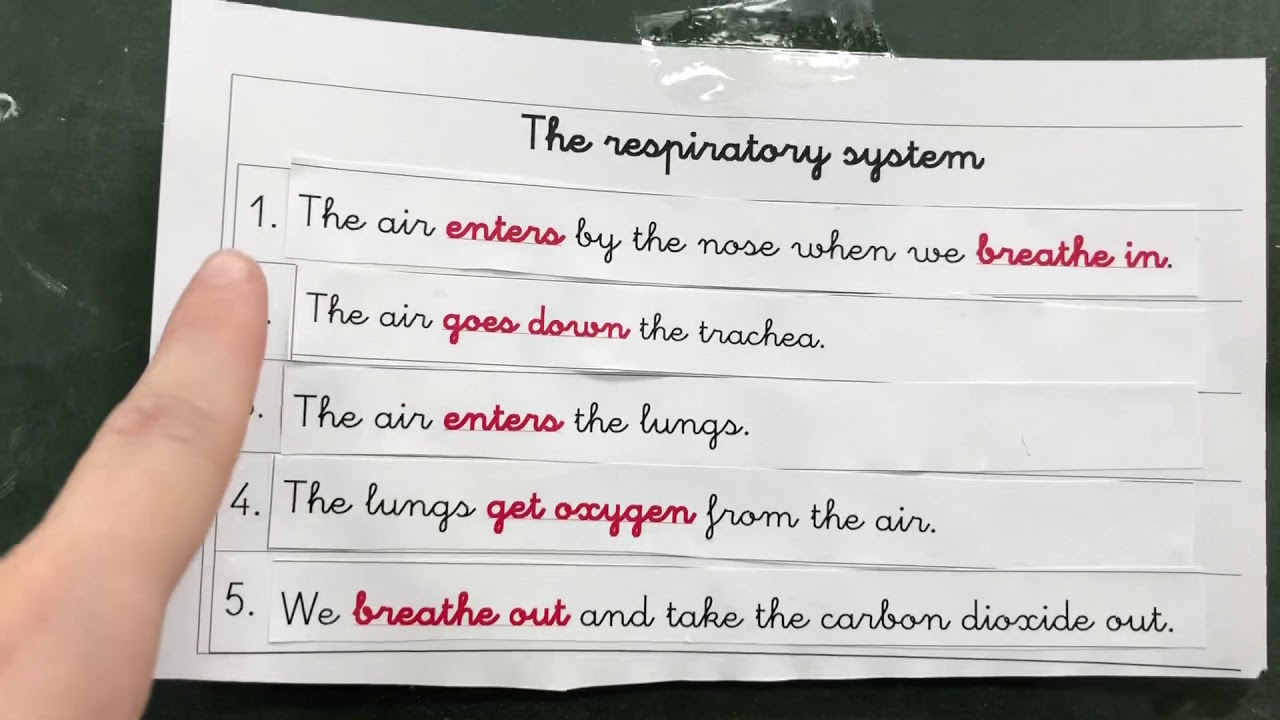 The respiratory system
1. The air enters by the nose when we breathe in.
The air goes down the trachea.
The air enters the lungs.
4. The lungs get oxygen from the air.
5. We breathe out and take the carbon dioxide out.